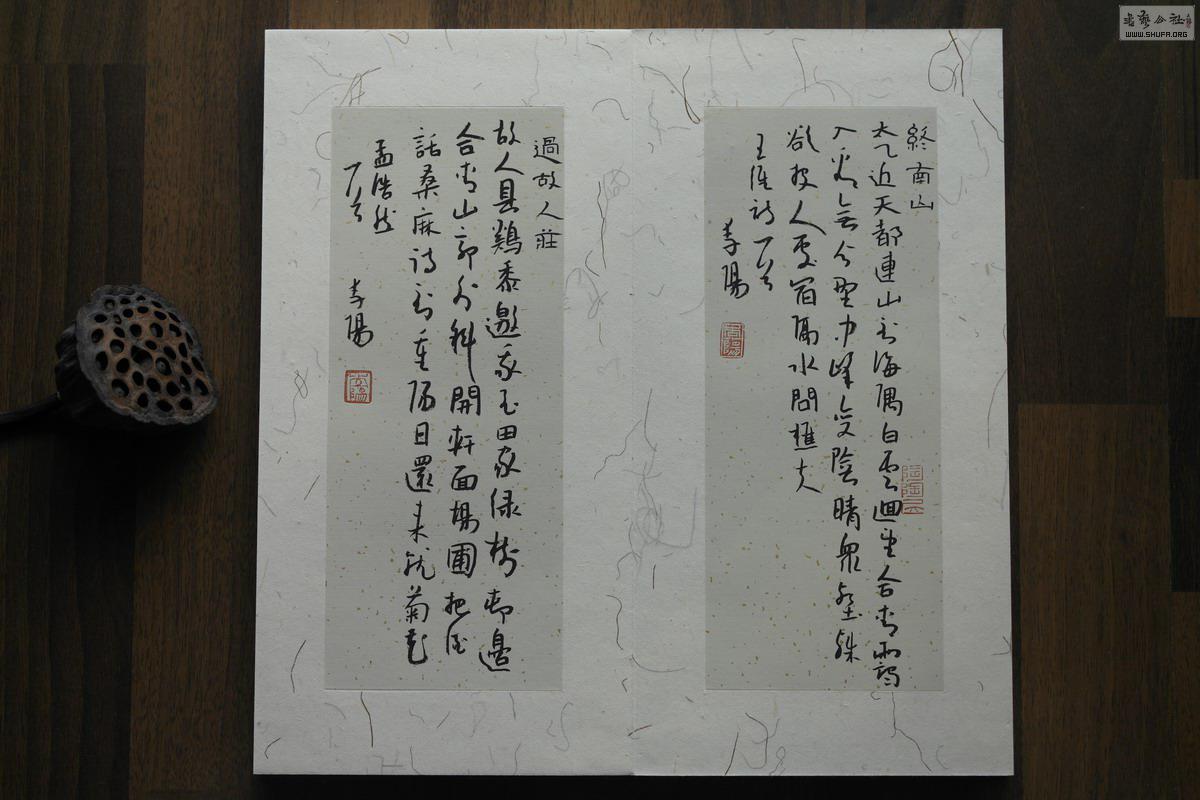 終南山
太乙近天都連山到海隅白雲迴望合青靄
入看無分野中峰變陰晴眾壑殊
欲投人處宿隔水問樵夫
王維詩一首
過故人莊
故人具鷄黍邀我至田家绿樹邨邊
合青山郭外斜開軒面場圃把酒
話桑麻待到重陽日還来就菊花
孟浩然
一首
書藝公社
WWW.SHUFA.ORG